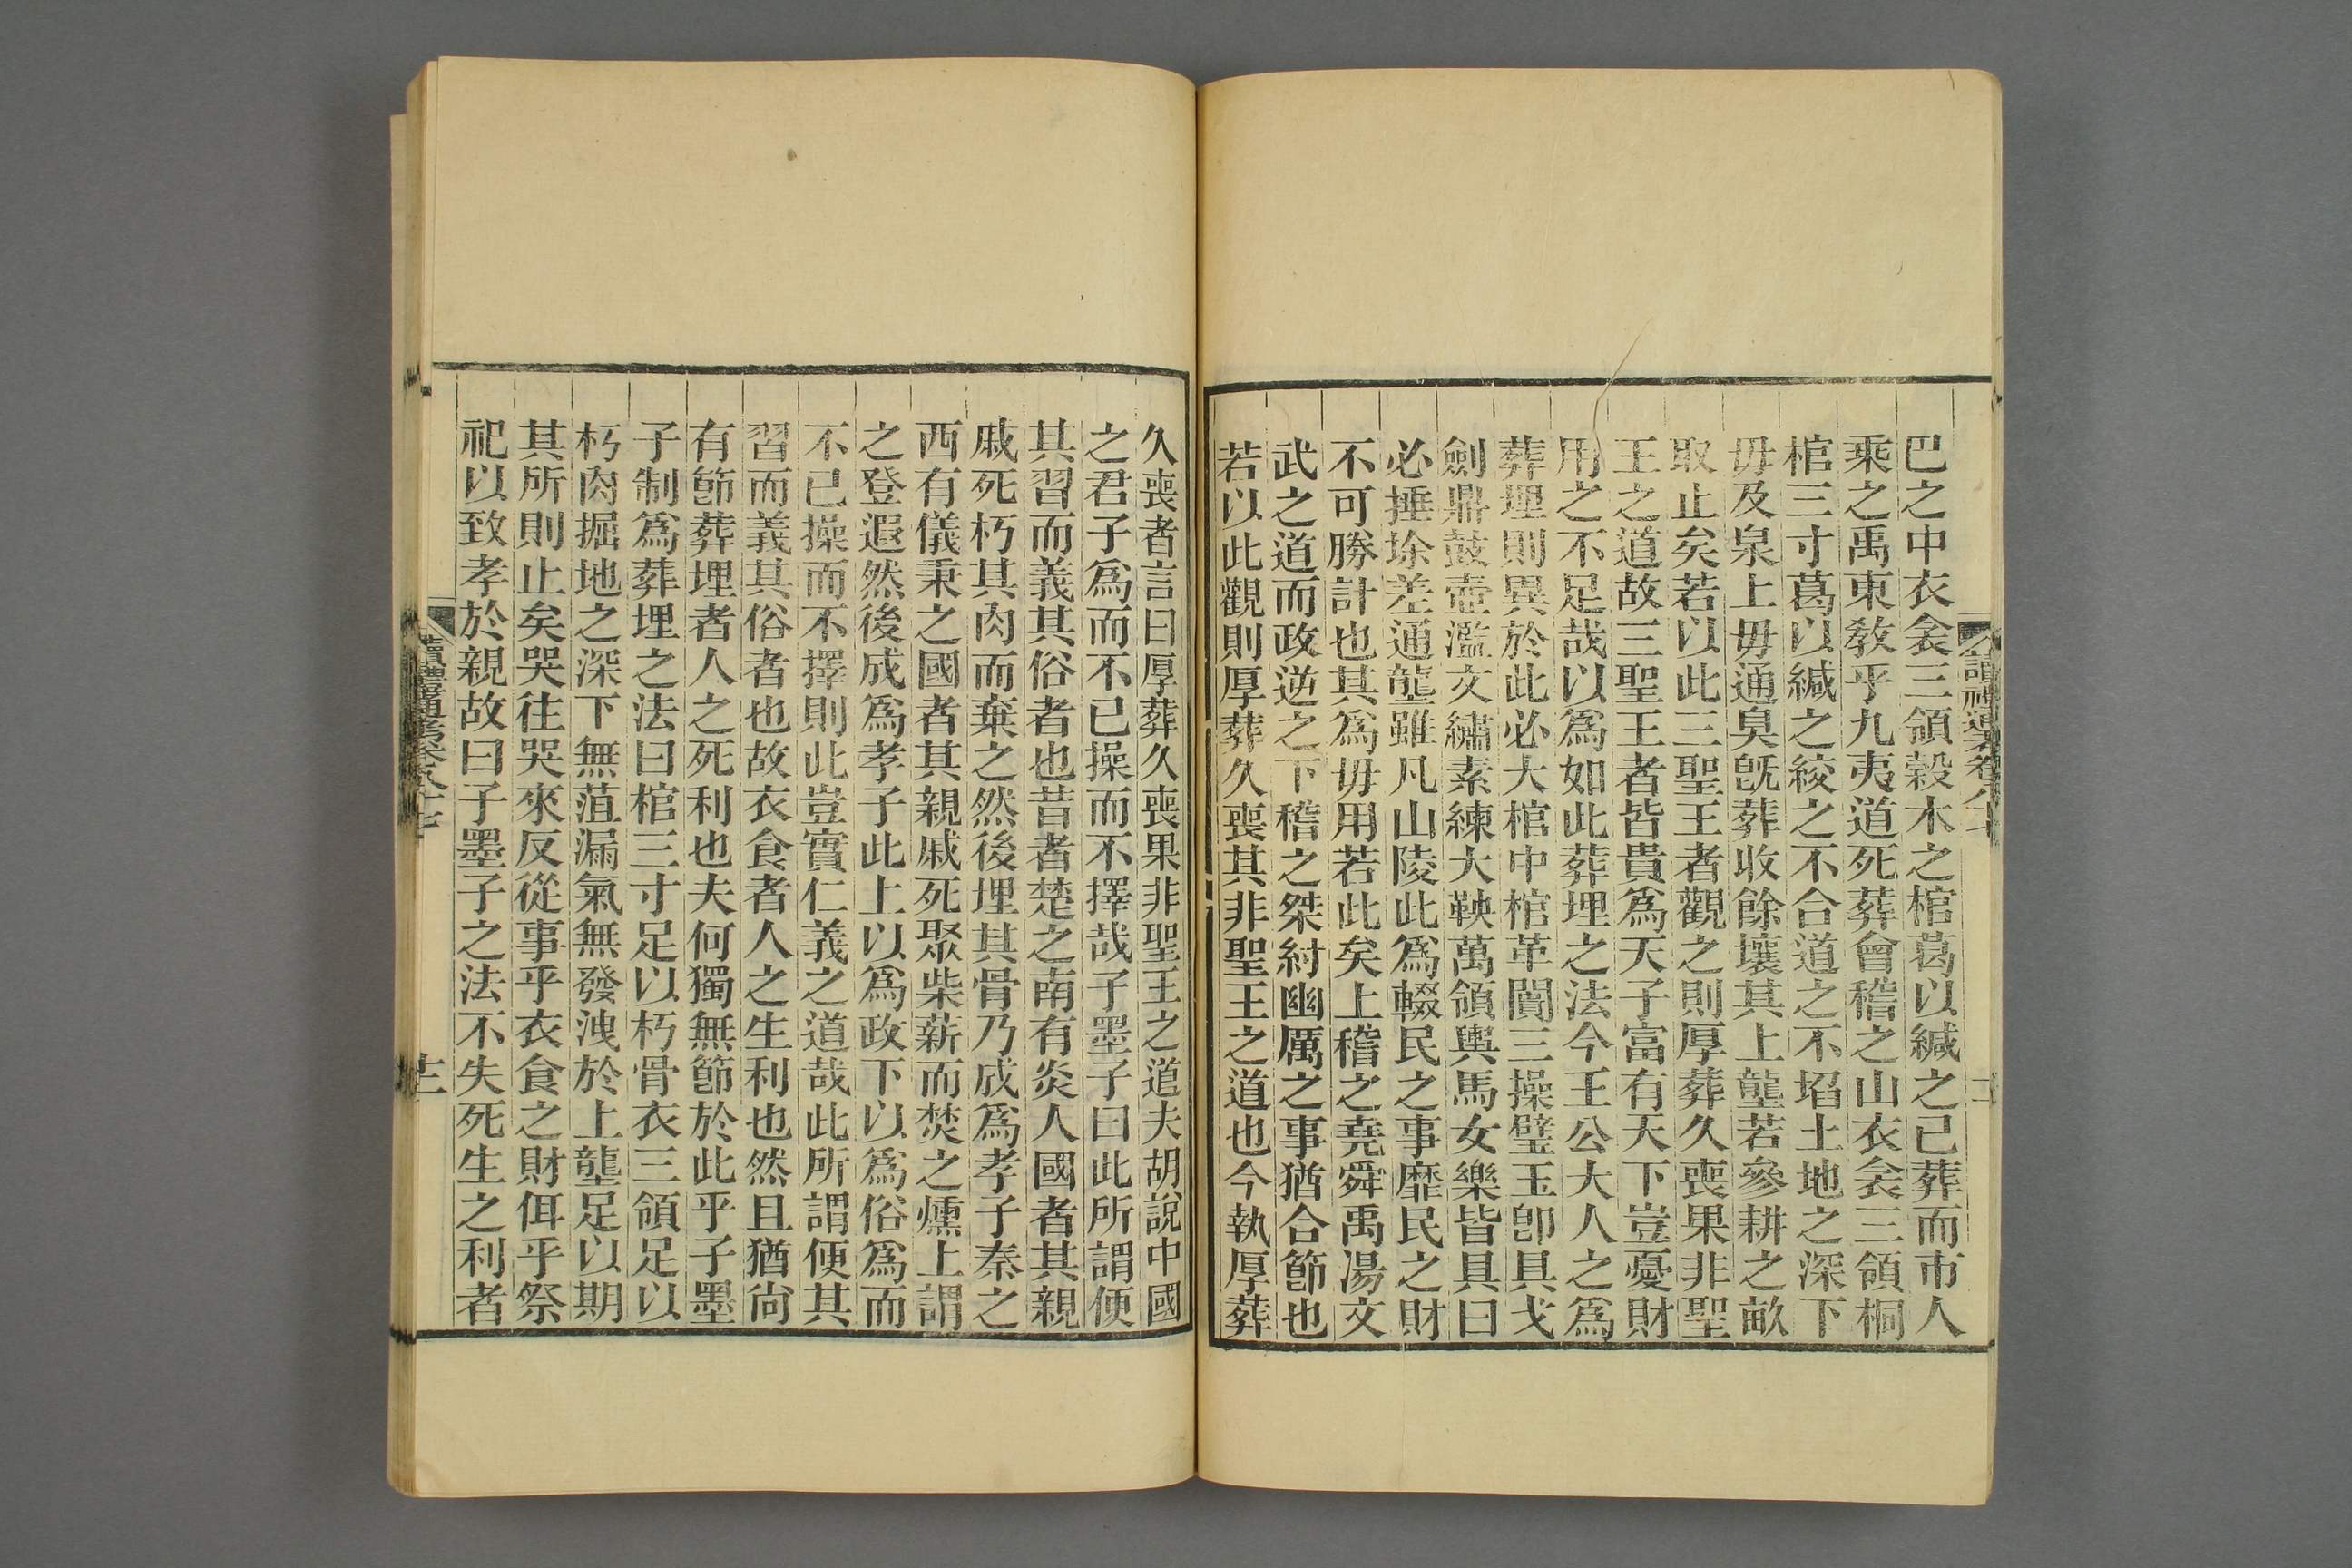 巴之中衣衾三領榖木之棺葛以緘之已葬而市人
乘之禹東敎乎九夷道死葬會稽之山衣衾三領桐
棺三寸葛以緘之絞之不合道之不埳土地之深下
毋及泉上毋通臭旣葬收餘壤其上壟若參耕之畝
取止矣若以此三聖王者觀之則厚葬久喪果非聖
王之道故三聖王者皆貴爲天子富有天下豈憂財
用之不足哉以爲如此葬埋之法今王公大人之爲
葬埋則異於此必大棺中棺革闠三操璧玉卽具戈
劍鼎鼓壺濫文繡素練大鞅萬領輿馬女樂皆具曰
必捶塗差通壟雖凡山陵此爲輟民之事靡民之財
不可勝計也其爲毋用若此矣上稽之堯舜禹湯文
武之道而政逆之下稽之桀紂幽厲之事猶合節也
若以此觀則厚葬久喪其非聖王之道也今執厚葬
久喪者言曰厚葬久喪果非聖王之道夫胡說中國
之君子爲而不已操而不擇哉子墨子曰此所謂便
其習而義其俗者也昔者楚之南有炎人國者其親
戚死朽其肉而棄之然後埋其骨乃成爲孝子秦之
西有儀秉之國者其親戚死聚柴薪而焚之燻上謂
之登遐然後成爲孝子此上以爲政下以爲俗爲而
不已操而不擇則此豈實仁義之道哉此所謂便其
習而義其俗者也故衣食者人之生利也然且猶尙
有節葬埋者人之死利也夫何獨無節於此乎子墨
子制爲葬埋之法曰棺三寸足以朽骨衣三領足以
朽肉掘地之深下無菹漏氣無發洩於上壟足以期
其所則止矣哭往哭來反從事乎衣食之財佴乎祭
祀以致孝於親故曰子墨子之法不失死生之利者
讀禮通考卷八十七